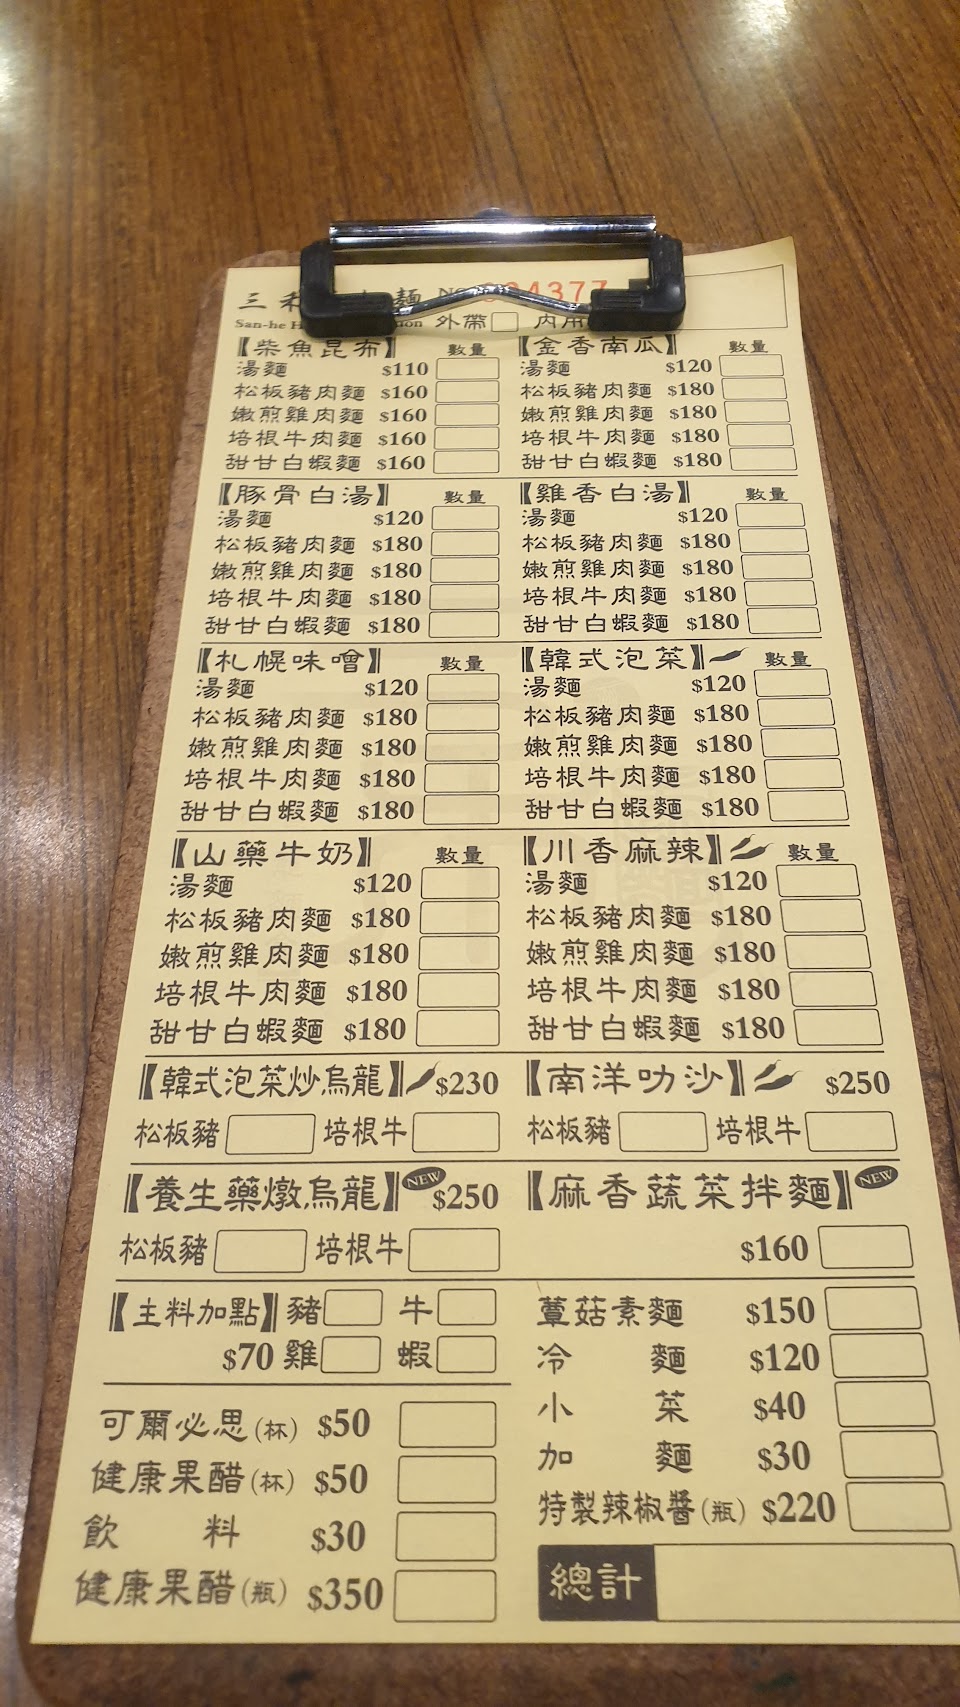 三 麵 NO 4377
San-he H on 外帶 內用
【柴魚昆布】 數量
湯麵 $110
松板豬肉麵 $160
嫩煎雞肉麵 $160
培根牛肉麵 $160
甜甘白蝦麵 $160
【金香南瓜】 數量
湯麵 $120
松板豬肉麵 $180
嫩煎雞肉麵 $180
培根牛肉麵 $180
甜甘白蝦麵 $180
【豚骨白湯】 數量
湯麵 $120
松板豬肉麵 $180
嫩煎雞肉麵 $180
培根牛肉麵 $180
甜甘白蝦麵 $180
【雞香白湯】 數量
湯麵 $120
松板豬肉麵 $180
嫩煎雞肉麵 $180
培根牛肉麵 $180
甜甘白蝦麵 $180
【札幌味噌】 數量
湯麵 $120
松板豬肉麵 $180
嫩煎雞肉麵 $180
培根牛肉麵 $180
甜甘白蝦麵 $180
【韓式泡菜】 數量
湯麵 $120
松板豬肉麵 $180
嫩煎雞肉麵 $180
培根牛肉麵 $180
甜甘白蝦麵 $180
【山藥牛奶】 數量
湯麵 $120
松板豬肉麵 $180
嫩煎雞肉麵 $180
培根牛肉麵 $180
甜甘白蝦麵 $180
【川香麻辣】 數量
湯麵 $120
松板豬肉麵 $180
嫩煎雞肉麵 $180
培根牛肉麵 $180
甜甘白蝦麵 $180
【韓式泡菜炒烏龍】 $230
松板豬 培根牛
【南洋叻沙】 $250
松板豬 培根牛
【養生藥燉烏龍】 NEW $250
松板豬 培根牛
【麻香蔬菜拌麵】 NEW
$160
【主料加點】 豬 牛
$70 雞 蝦
可爾必思(杯) $50
健康果醋(杯) $50
飲料 $30
健康果醋(瓶) $350
蕈菇素麵 $150
冷麵 $120
小菜 $40
加麵 $30
特製辣椒醬(瓶) $220
總計